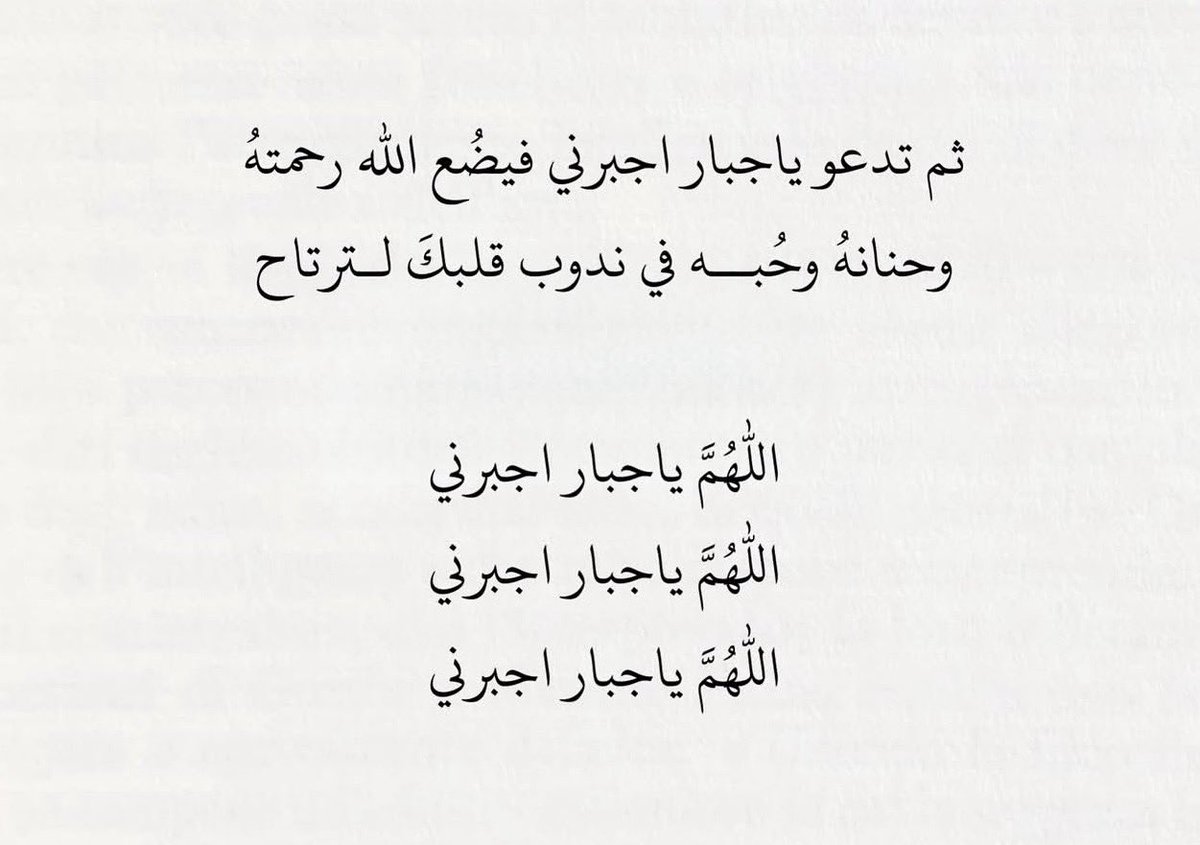 ثم تدعو ياجبار اجبرني فيضُع الله رحمتهُ
وحنانهُ وحُبـــه في ندوب قلبكَ لــترتاح
اللّٰهُمَّ ياجبار اجبرني
اللّٰهُمَّ ياجبار اجبرني
اللّٰهُمَّ ياجبار اجبرني